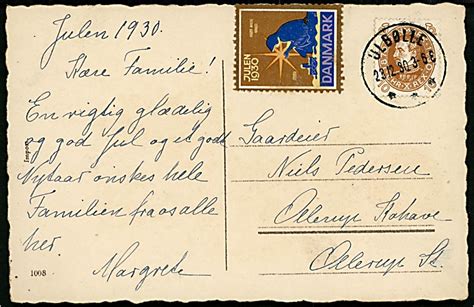 Julen 1930.
Kære Familie!
En rigtig glædelig
og god Jul og et godt
Nytaar ønskes hele
Familien fra os alle
her
Margrete
1008
JULEN
1930
DANMARK
ULBØLLE
23.12.30.3-6 E
10 10
Gaardeier
Niels Pedersen
Ollerup
Ollerup St.